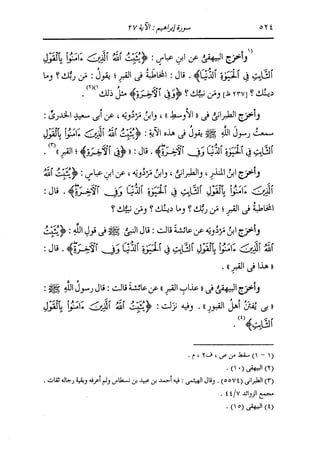 ٥٢٤ سورة إبراهيم : الآية ٢٧
(١)وأخرج البيهقىُّ عن ابنِ عباسٍ : ﴿يُثَبِّتُ اللَّهُ الَّذِينَ ءَامَنُوا بِالْقَوْلِ
الثَّابِتِ فِي الْحَيَوٰةِ الدُّنْيَا﴾ . قال : المخاطبةُ فى القبرِ ؛ يقولُ : مَن ربُّك ؟ وما
دينُك ؟ [٢٣٧ظ] ومَن نبيُّك ؟ ﴿وَفِي الْآخِرَةِ﴾ مثلُ ذلك(٢)(١) .
وأخرج الطبرانىُّ فى «الأوسطِ» ، وابنُ مَرْدُويَه ، عن أبى سعيدٍ الخدرىِّ :
سمعتُ رسولَ اللَّهِ ﷺ يقولُ فى هذه الآيةِ : ﴿يُثَبِّتُ اللَّهُ الَّذِينَ ءَامَنُوا بِالْقَوْلِ
الثَّابِتِ فِي الْحَيَوٰةِ الدُّنْيَا وَفِي الْآخِرَةِ﴾ . قال : «﴿فِي الْآخِرَةِ﴾ ؛ القبرِ»(٣) .
وأخرج ابنُ المنذرِ ، والطبرانىُّ ، وابنُ مَرْدُويَه ، عن ابنِ عباسٍ : ﴿يُثَبِّتُ اللَّهُ
الَّذِينَ ءَامَنُوا بِالْقَوْلِ الثَّابِتِ فِي الْحَيَوٰةِ الدُّنْيَا وَفِي الْآخِرَةِ﴾ . قال :
المخاطبةُ فى القبرِ ؛ مَن ربُّك ؟ وما دينُك ؟ ومَن نبيُّك ؟
وأخرج ابنُ مَرْدُويَه عن عائشةَ قالت : قال النبىُّ ﷺ فى قولِ اللَّهِ : ﴿يُثَبِّتُ
اللَّهُ الَّذِينَ ءَامَنُوا بِالْقَوْلِ الثَّابِتِ فِي الْحَيَوٰةِ الدُّنْيَا وَفِي الْآخِرَةِ﴾ . قال :
«هذا فى القبرِ» .
وأخرج البيهقىُّ فى «عذابِ القبرِ» عن عائشةَ قالت : قال رسولُ اللَّهِ ﷺ :
«بى يُفْتَنُ أهلُ القبورِ» . وفيه نزلت : ﴿يُثَبِّتُ اللَّهُ الَّذِينَ ءَامَنُوا بِالْقَوْلِ
الثَّابِتِ﴾(٤) .
(١ - ١) سقط من ص ، ف٢ ، م .
(٢) البيهقى (١٠) .
(٣) الطبرانى (٥٥٧٤) . وقال الهيثمى : فيه أحمد بن عبيد بن نسطاس ولم أعرفه وبقية رجاله ثقات .
مجمع الزوائد ٤٤/٧ .
(٤) البيهقى (١٥) .